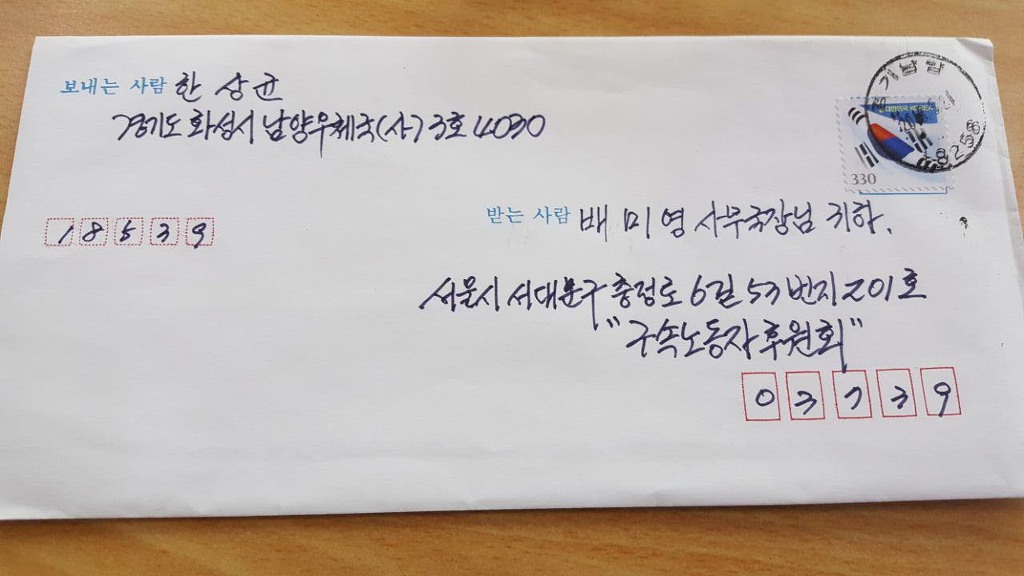 보내는 사람 한상균
경기도 화성시 남양우체국(사)3호 4030
18539
대한민국 KOREA
330
받는 사람 배미영 사무국장님 귀하.
서울시 서대문구 충정로6길 53번지 201호
"구속노동자후원회"
03739